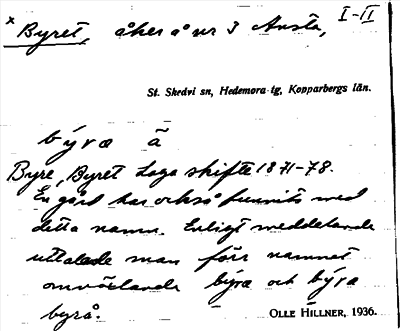 x Byret, åker å nr 3 Ansta, I-II
St. Skedvi sn, Hedemora tg, Kopparbergs län.
býræ ã
Byre, Byret Laga skifte 1871-78.
En gård har också funnits med
detta namn. Enligt meddelande
uttalade man förr namnet
omväxlande býræ och býra
byrå. OLLE HILLNER, 1936.